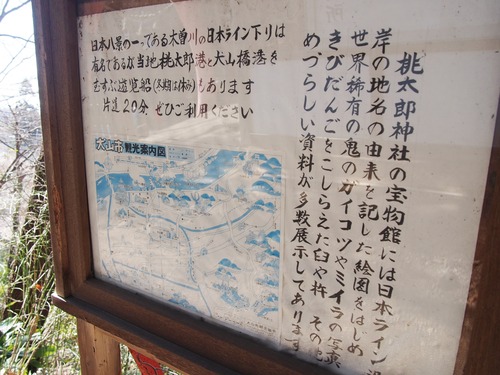 桃太郎神社の宝物館には日本ライン沿
岸の地名の由来を記した絵図をはじめ
世界稀有の鬼のガイコツやミイラの写真
きびだんごをこしらえた臼や杵 その他
めづらしい資料が多数展示してあります
日本八景の一つである木曽川の日本ライン下りは
有名であるが当地桃太郎港と犬山橋港を
むすぶ遊覧船(冬期は休み)もあります
片道20分 ぜひご利用ください
犬山市観光案内図